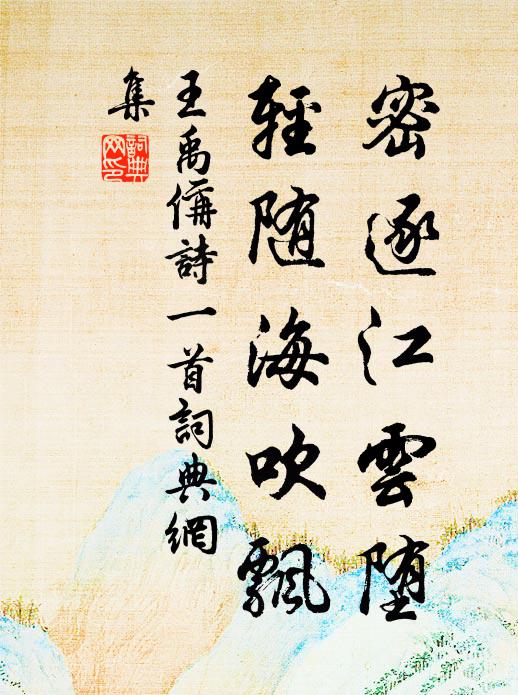 密逐江雲堕
輕随海吹飄
王禹偁詩一首詞典網
集
詞典
网印